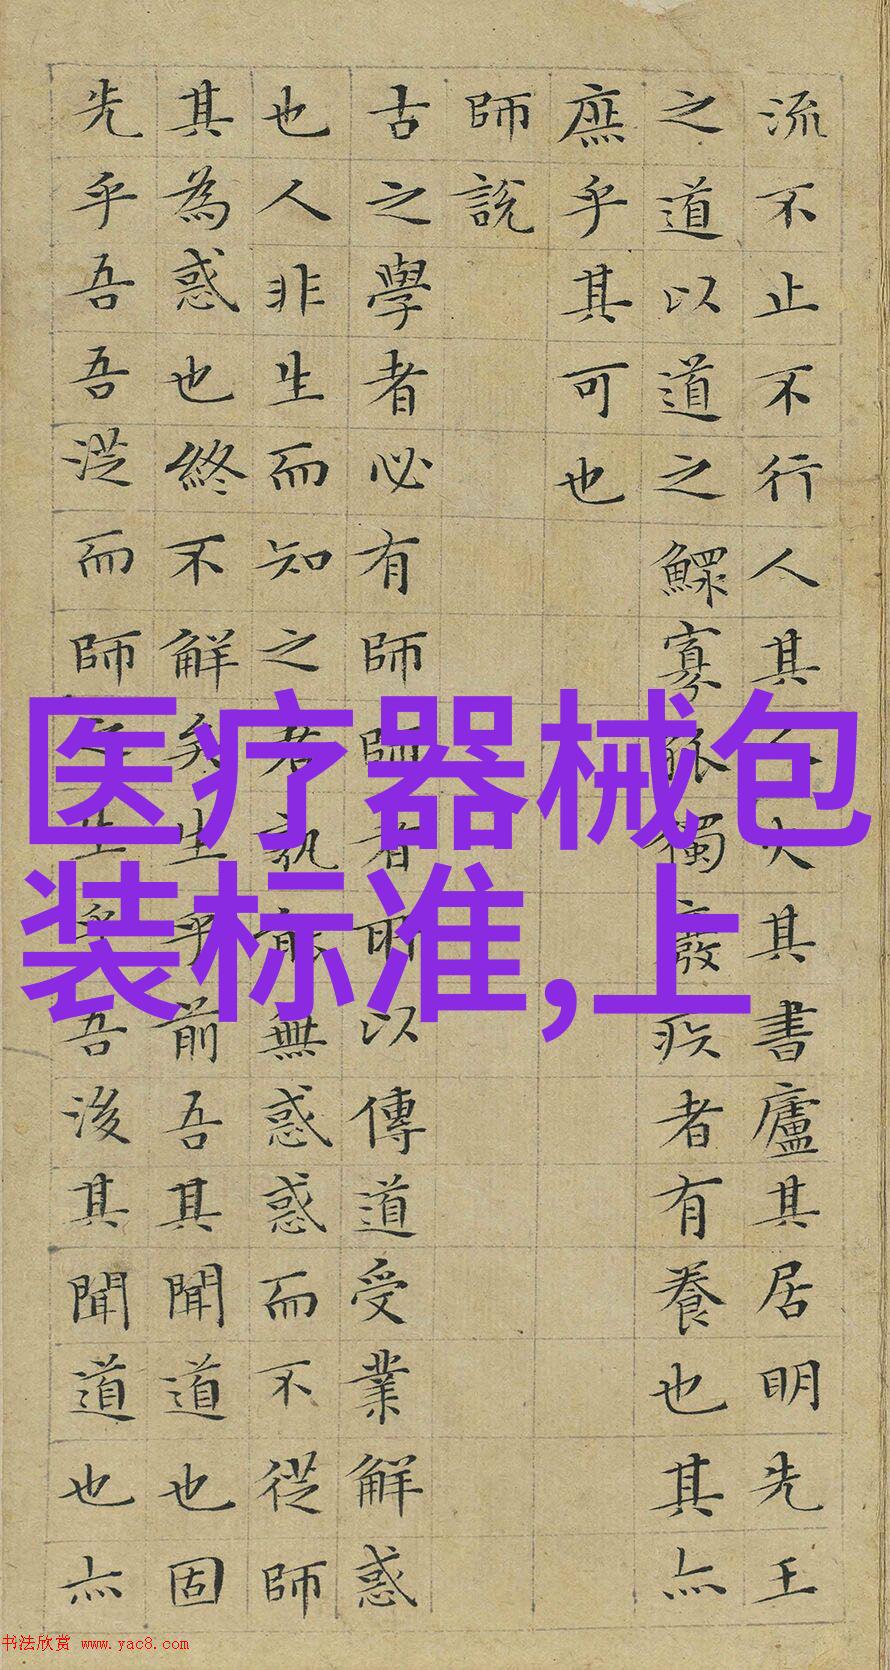 流不止不行人其人火其書廬其居明先王
之道以道之鰥寡孤獨廢疾者有養也其亦
庶乎其可也
師說
古之學者必有師師者所以傳道受業解惑
也人非生而知之者孰能無惑惑而不從師
其為惑也終不解矣生乎前吾其聞道也固
先乎吾吾從而師之生乎吾後其聞道也亦
医疗器械包
装标准,上
书法欣赏 www.yac8.com